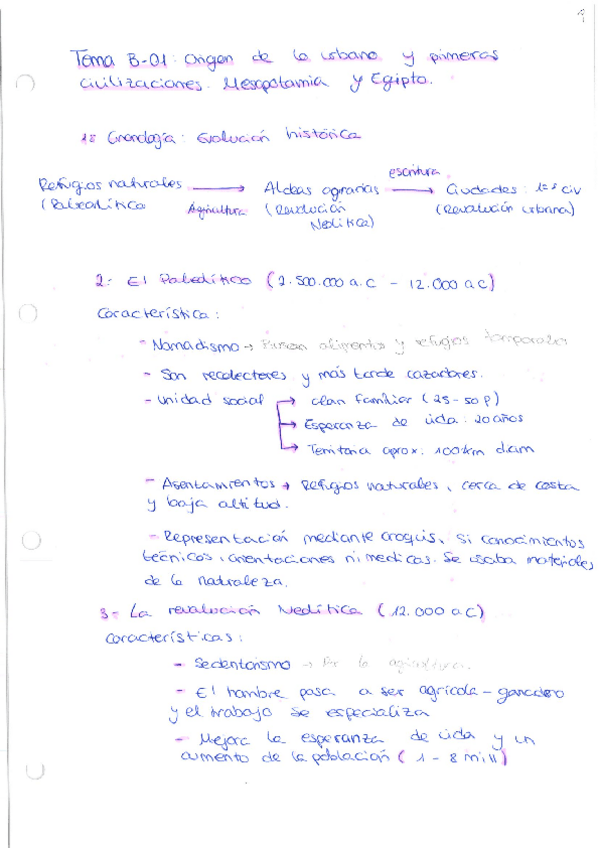 1
Tema B-01: Origen de lo urbano y primeras
civilizaciones. Mesopotamia y Egipto.
1= Cronología: Evolución histórica
escritura
Refugios naturales → Aldeas agrarias → Ciudades: 1ªs civ
(Paleolítico Agricultura (Revolución (Revolución urbana)
Neolítica)
2- El Paleolítico (2.500.000 a.C - 12.000 a.C)
Característica:
- Nomadismo → alimentos y refugios temporales
- Son recolectores y más tarde cazadores.
- Unidad social → clan familiar (25-50 p)
→ Esperanza de vida: 20 años
→ Territorio aprox: 100 km diam
- Asentamientos → Refugios naturales, cerca de costa
y baja altitud.
- Representación mediante croquis, si conocimientos
técnicos, orientaciones ni medicas. Se usaba materiales
de la natraleza.
3- La revolución Neolítica (12.000 a.C)
Características:
- Sedentarismo → Por la agricultura.
- El hombre pasa a ser agrícola - ganadero
y el trabajo se especializa
- Mejora la esperanza de vida y un
aumento de la población (1 - 8 mill)